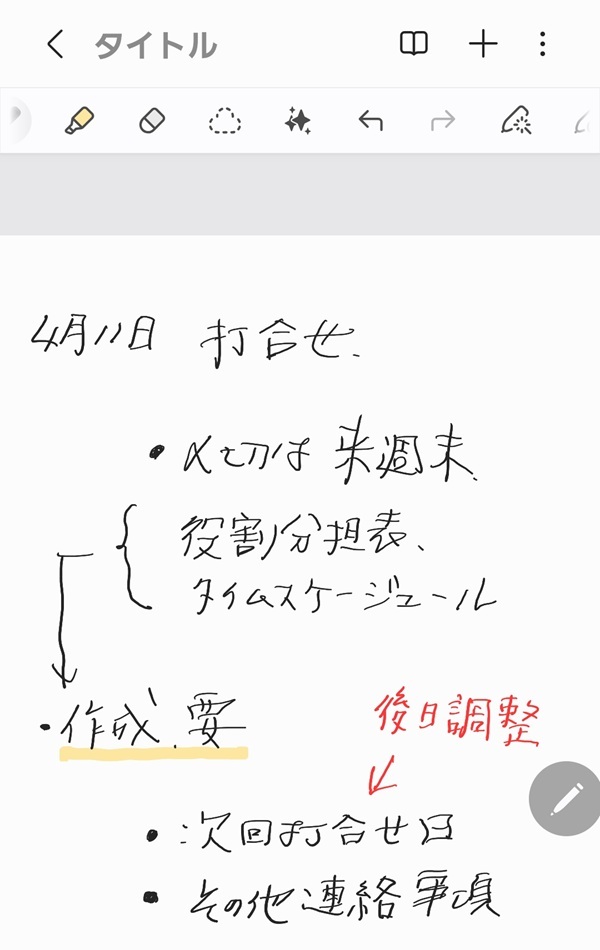 タイトル
4月11日 打合せ.
・〆切は来週末.
役割分担表、
タイムスケージュール
・作成.要
後日調整
・次回打合せ日
・その他連絡事項